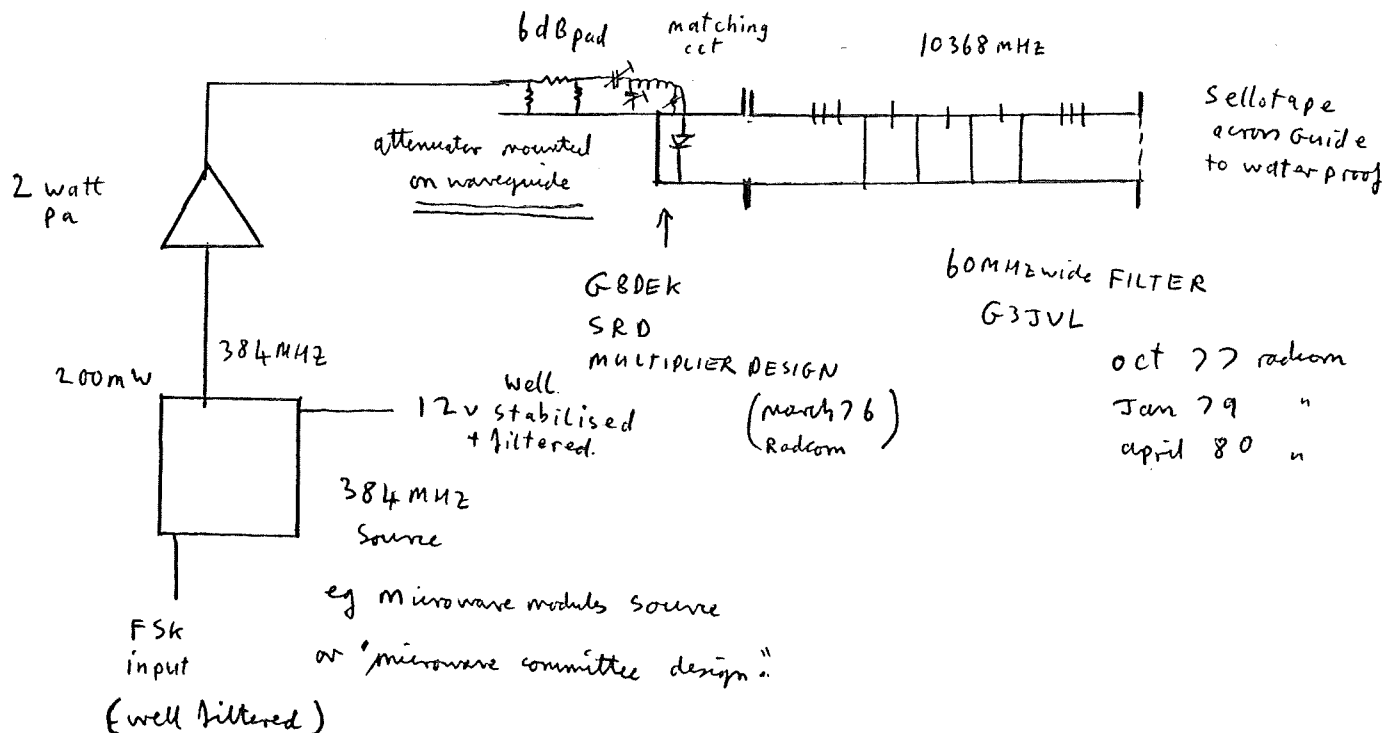 6dB pad
matching
cct
10368 MHz
Sellotape
across Guide
to waterproof
attenuator mounted
on waveguide
2 watt
pa
G8DEK
SRD
MULTIPLIER DESIGN
(March 76
Radcom)
60MHz wide FILTER
G3JVL
oct 77 radcom
Jan 79 "
april 80 "
384 MHZ
200mW
12v well
stabilised
+ filtered.
384 MHZ
Source
eg Microwave modules source
or "microwave committee design."
FSK
input
(well filtered)